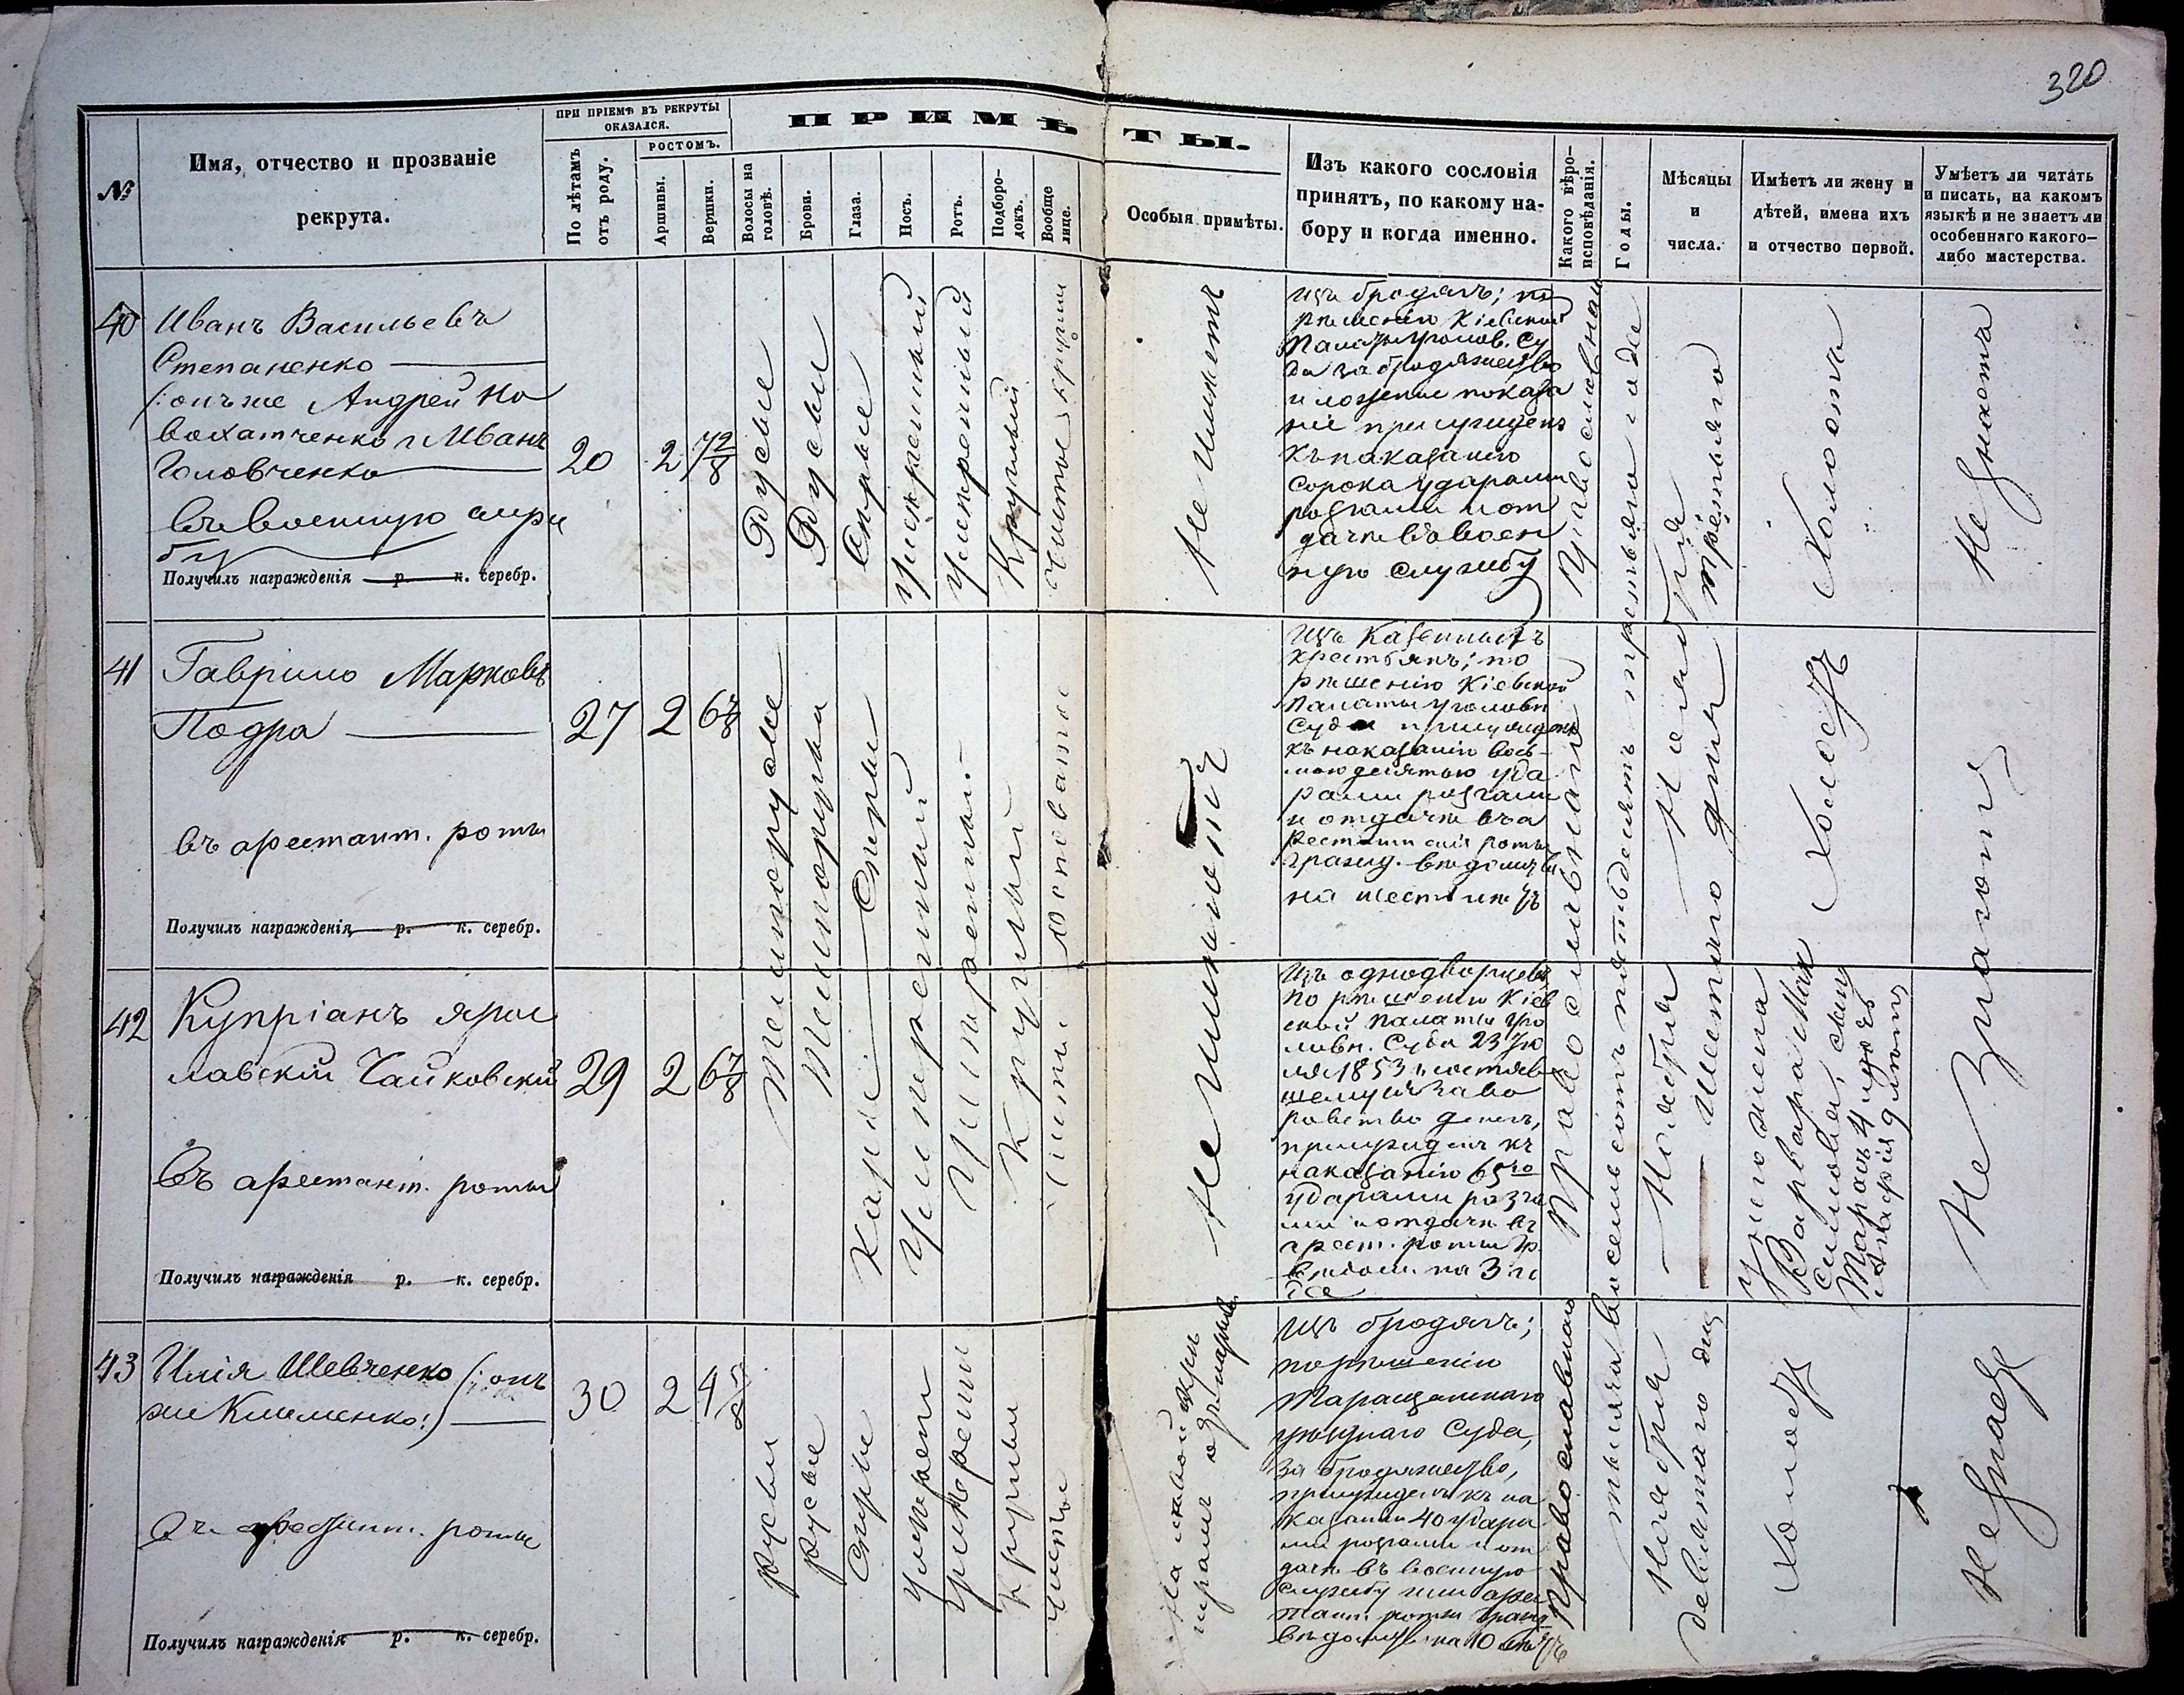 320
№
Имя, отчество и прозваніе
рекрута.
ПРИ ПРІЕМѢ ВЪ РЕКРУТЫ
ОКАЗАЛСЯ.
По лѣтамъ
отъ роду.
РОСТОМЪ.
Аршины.
Вершки.
ПРИМѢТЫ.
Волосы на
головѣ.
Брови.
Глаза.
Носъ.
Ротъ.
Подборо-
докъ.
Вообще
лице.
Особыя примѣты.
Изъ какого сословія
принятъ, по какому на-
бору и когда именно.
Какого вѣро-
исповѣданія.
Годы.
Мѣсяцы
и
числа.
Имѣетъ ли жену и
дѣтей, имена ихъ
и отчество первой.
Умѣетъ ли читать
и писать, на какомъ
языкѣ и не знаетъ ли
особеннаго какого-
либо мастерства.
40
Иванъ Васильевъ
Степаненко
(: онъ же Андрей Ко
валатченко и Иванъ
Головченко
въ военную служ
бу
Получилъ награжденія р. к. серебр.
20
2
7 2/8
Русые
Русые
Сѣрые
Умѣренный
Умѣренный
Круглый
Чистое круглое
Не имѣетъ
Изъ бродягъ; по
рѣшенію Кіевской
Палаты Уголов. Су
да за бродяжество
и ложные показа
нія присужденъ
къ наказанію
сорока ударами
розгами и от
дачѣ въ воен
ную службу
Православнаго
тысяча восемьсотъ пятьдесятъ третьяго года
Ноября
третьяго
Холостъ
Не знаетъ
41
Гаврило Марковъ
Подра
въ арестант. роты
Получилъ награжденія р. к. серебр.
27
2
6 7/8
Темнорусые
Темнорусыя
Сѣрыи
Умѣренный
Умѣренный
Круглый
Не имѣетъ
Изъ Казенныхъ
крестьянъ; по
рѣшенію Кіевской
Палаты Уголовн
Суда присужденъ
къ наказанію вось-
мью десятью уда
рами розгами
и отдачѣ въ а
рестантскія роты
гражд. вѣдомства
на шесть лѣтъ
Православнаго
Ноября
дня
Холостъ
Не знаетъ
42
Купріанъ Ярос
лавскій Чайковскій
Въ арестант. роты
Получилъ награжденія р. к. серебр.
29
2
6 7/8
Каріе
Чистое
Изъ однодворцевъ,
по рѣшенію Кіев
ской Палаты Уго
ловн. Суда 23 Ію
ля 1853
за во
ровство денегъ,
присужденъ къ
наказанію 65ю
ударами розга
ми и отдачѣ въ
арест. роты гр.
вѣдом. на 3 го
да
Ноября
Шестаго
У него жена
Варвара Мак
симова, сыну
Марахъ 4 года
9 лѣтъ
43
Илія Шевченко (: онъ
же Клименко :)
Въ арестант. роты
Получилъ награжденія р. к. серебр.
30
2
4
русыи
русые
Сѣрые
Умѣрен
Умѣренныи
Круглыи
чистое
На лѣвой
шрамъ
Изъ бродягъ;
по рѣшенію
Таращанскаго
уѣзднаго Суда,
за бродяжество,
присужденъ къ на
казанію 40 удара
ми розгами и от
дачѣ въ военную
службу или арес
тант. роты гражд.
вѣдомства на 10 лѣтъ
Православнаго
Ноября
девятаго дня
Холостъ
Не знаетъ